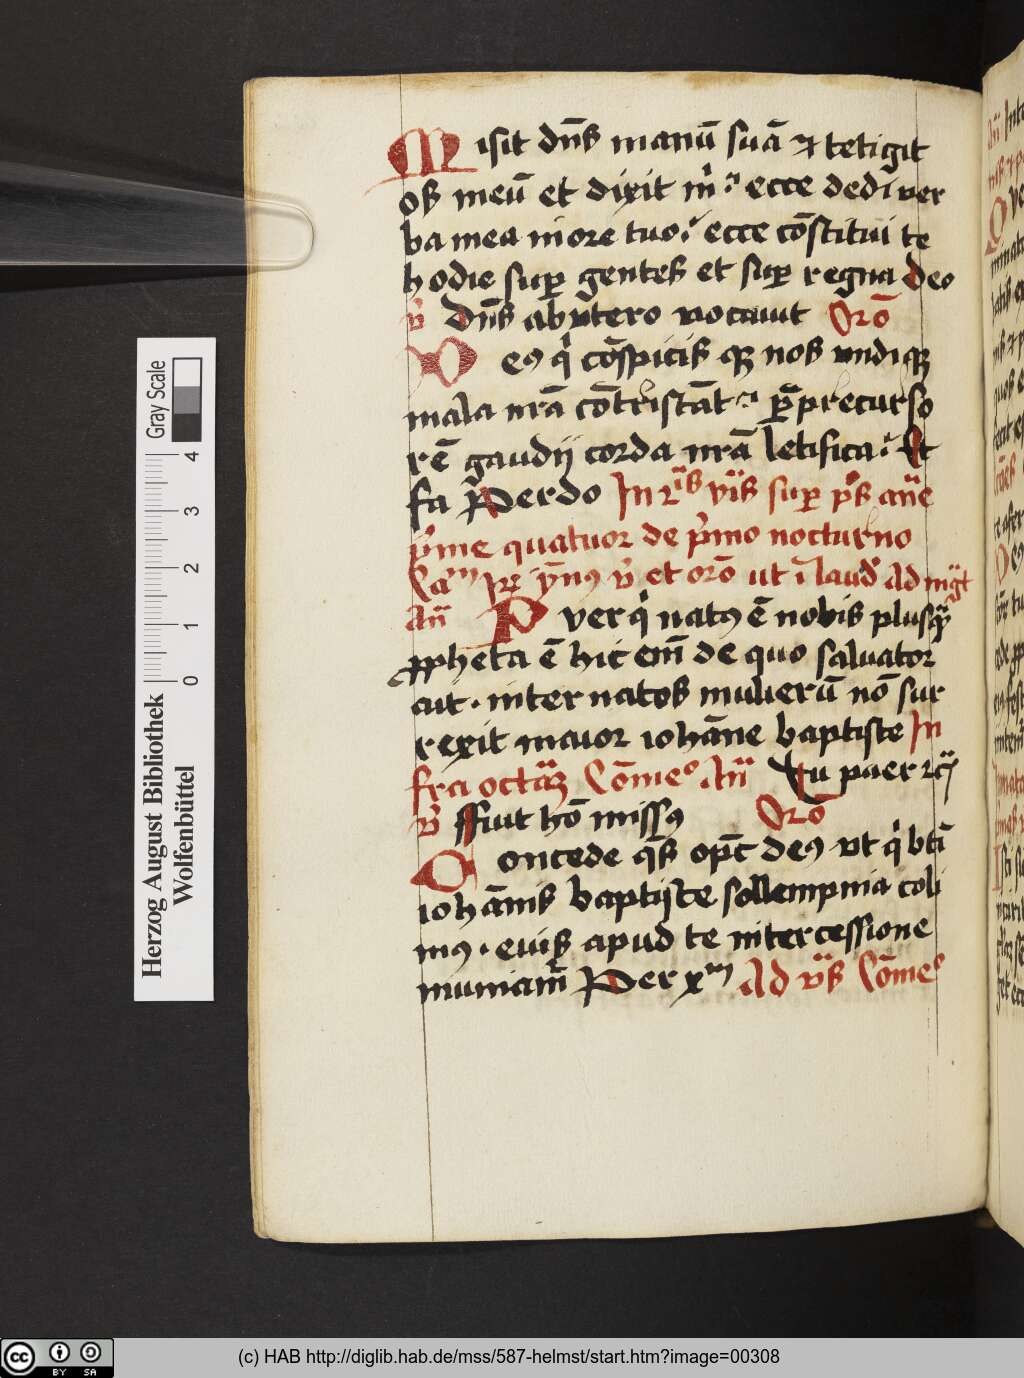 Misit dn̄s manū suā ⁊ tetigit
os meū et dixit m̍ ecce dedi ver
ba mea in ore tuo ecce cōstitui te
hodie suꝑ gentes et suꝑ regna deo
v̍ dn̄s ab vtero vocauit Orō
Deꝯ q̍ cōspicis qꝫ nos vndiqꝫ
mala nrā cōtristāt p̄ precurso
rē gaudij corda nrā letifica Et
fa Per do In vīs suꝑ p̄s an̄e
p̍me quatuor de p̍mo nocturno
ꝶ ypnꝯ v̍ et orō ut ī laud Ad mgt
An̄ Puer q̍ natꝯ ē nobis plusq̄
ꝓpheta ē hic em̄ de quo saluator
ait · inter natos mulierū nō sur
rexit maior iohāne baptiste In
fra octaꝫ Cōmeꝰ An̄ Tu puer ⁊c̄
v̍ ffuit hō missꝯ Orō
Concede qs̄ opc̄ deꝯ vt q̍ bti̅
iohānis baptiste sollempnia coli
mꝯ · euiꝰ apud te intercessione
muniam̄ Per xm Ad vs̄ Cōmeꝰ
Herzog August Bibliothek
Wolfenbüttel
Gray Scale
0 1 2 3 4
cc BY SA
(c) HAB http://diglib.hab.de/mss/587-helmst/start.htm?image=00308